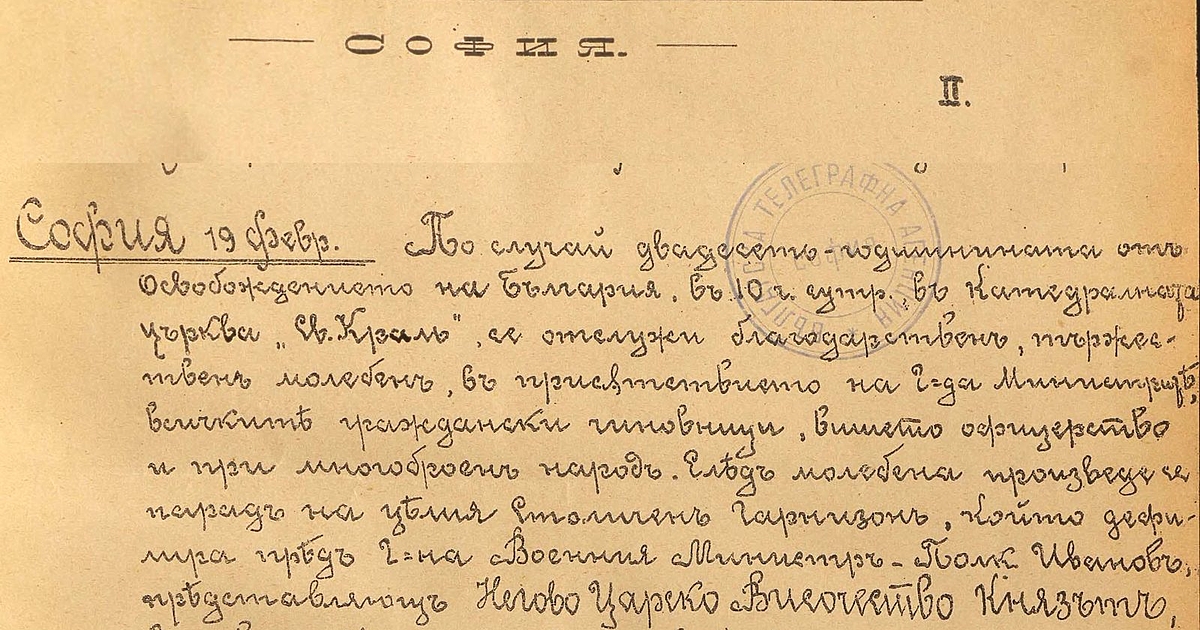 СОФИЯ.
II.
БЪЛГАРСКА ТЕЛЕГРАФНА АГЕНЦИЯ
София 19 февр. По случай двадесеть-годишнината отъ
Освобождението на България, въ 10 ч. сутр., въ Катедралната
църква „Св. Краль", се отслужи благодарственъ, тържес-
твенъ молебенъ, въ присѫтствието на Г-да Министритѣ,
всичкитѣ граждански чиновници, висшето офицерство
и при многоброенъ народъ. Слѣдъ молебена произведе се
парадъ на цѣлия Столиченъ Гарнизонъ, който дефи-
лира прѣдъ Г-на Военния Министръ - Полк. Ивановъ,
прѣдставляющъ Негово Царско Височество Князътъ,